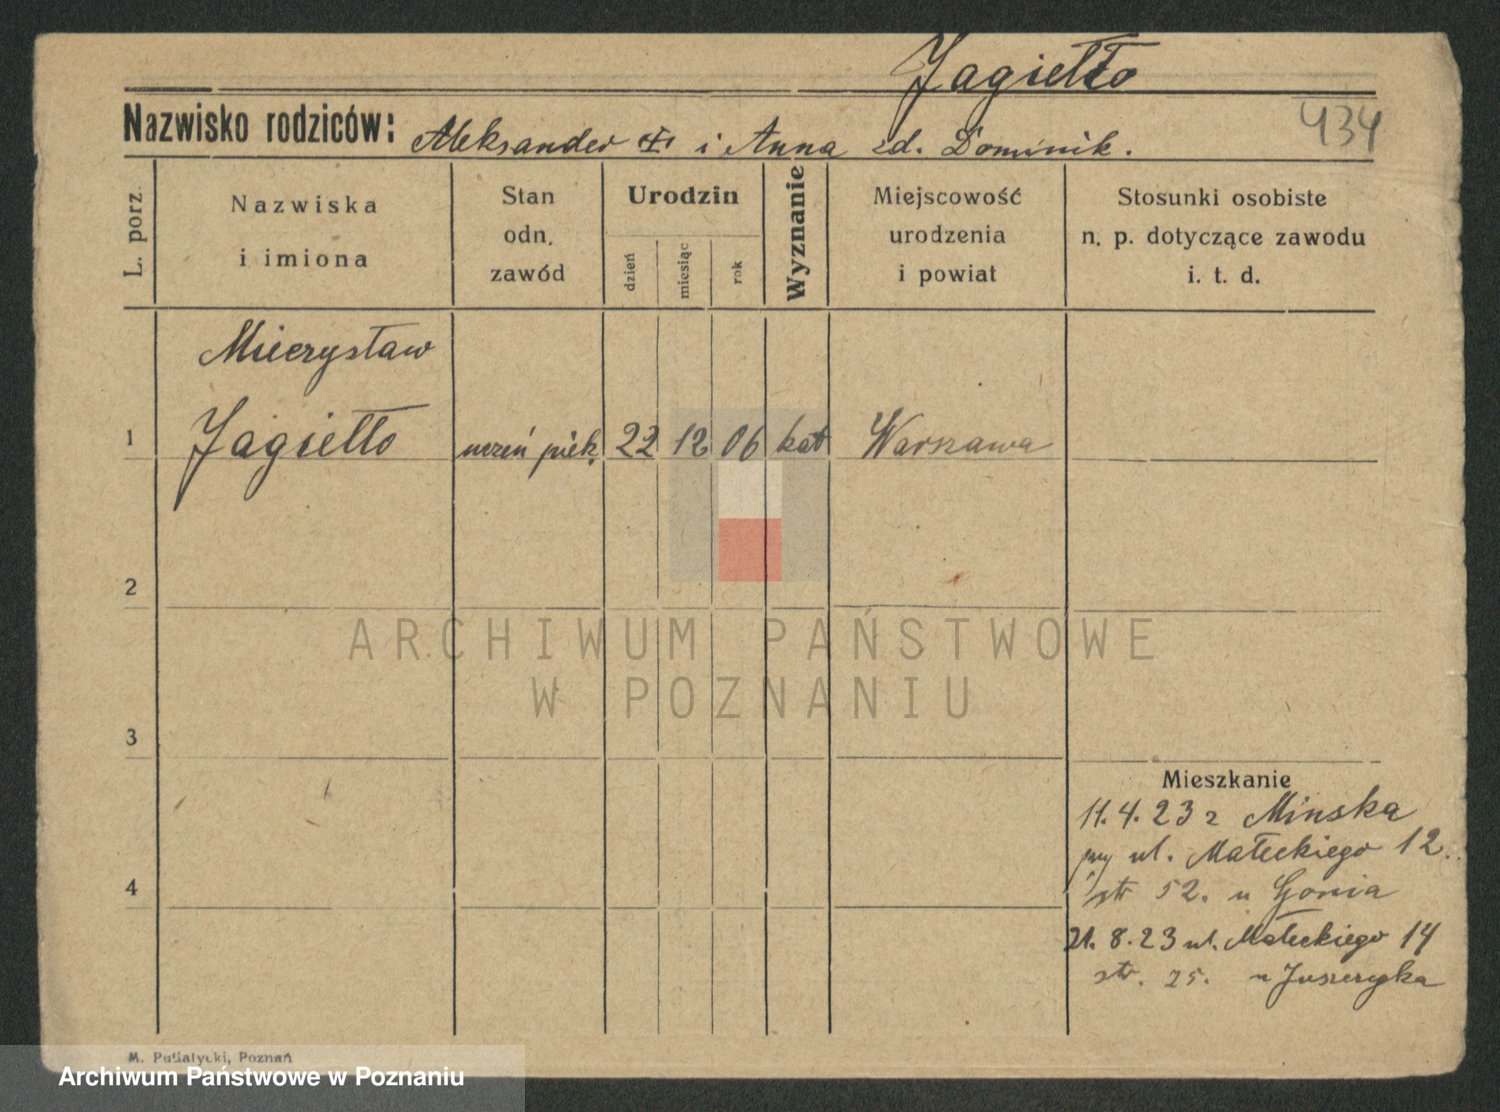 Jagiełło
434
Nazwisko rodziców: Aleksander i Anna zd. Dominik.
L. porz.
Nazwiska
i imiona
Stan
odn.
zawód
Urodzin
dzień
miesiąc
rok
Wyznanie
Miejscowość
urodzenia
i powiat
Stosunki osobiste
n. p. dotyczące zawodu
i. t. d.
Mieczysław
1 Jagiełło uczeń piek. 22 12 06 kat Warszawa
2
ARCHIWUM PAŃSTWOWE
W POZNANIU
3
Mieszkanie
11.4.23 z Mińska
przy ul. Małeckiego 12.
4
str 52. u Gonia
21.8.23 ul. Małeckiego 14
str. 25. u Juszczyka
M. Putiatycki, Poznań
Archiwum Państwowe w Poznaniu